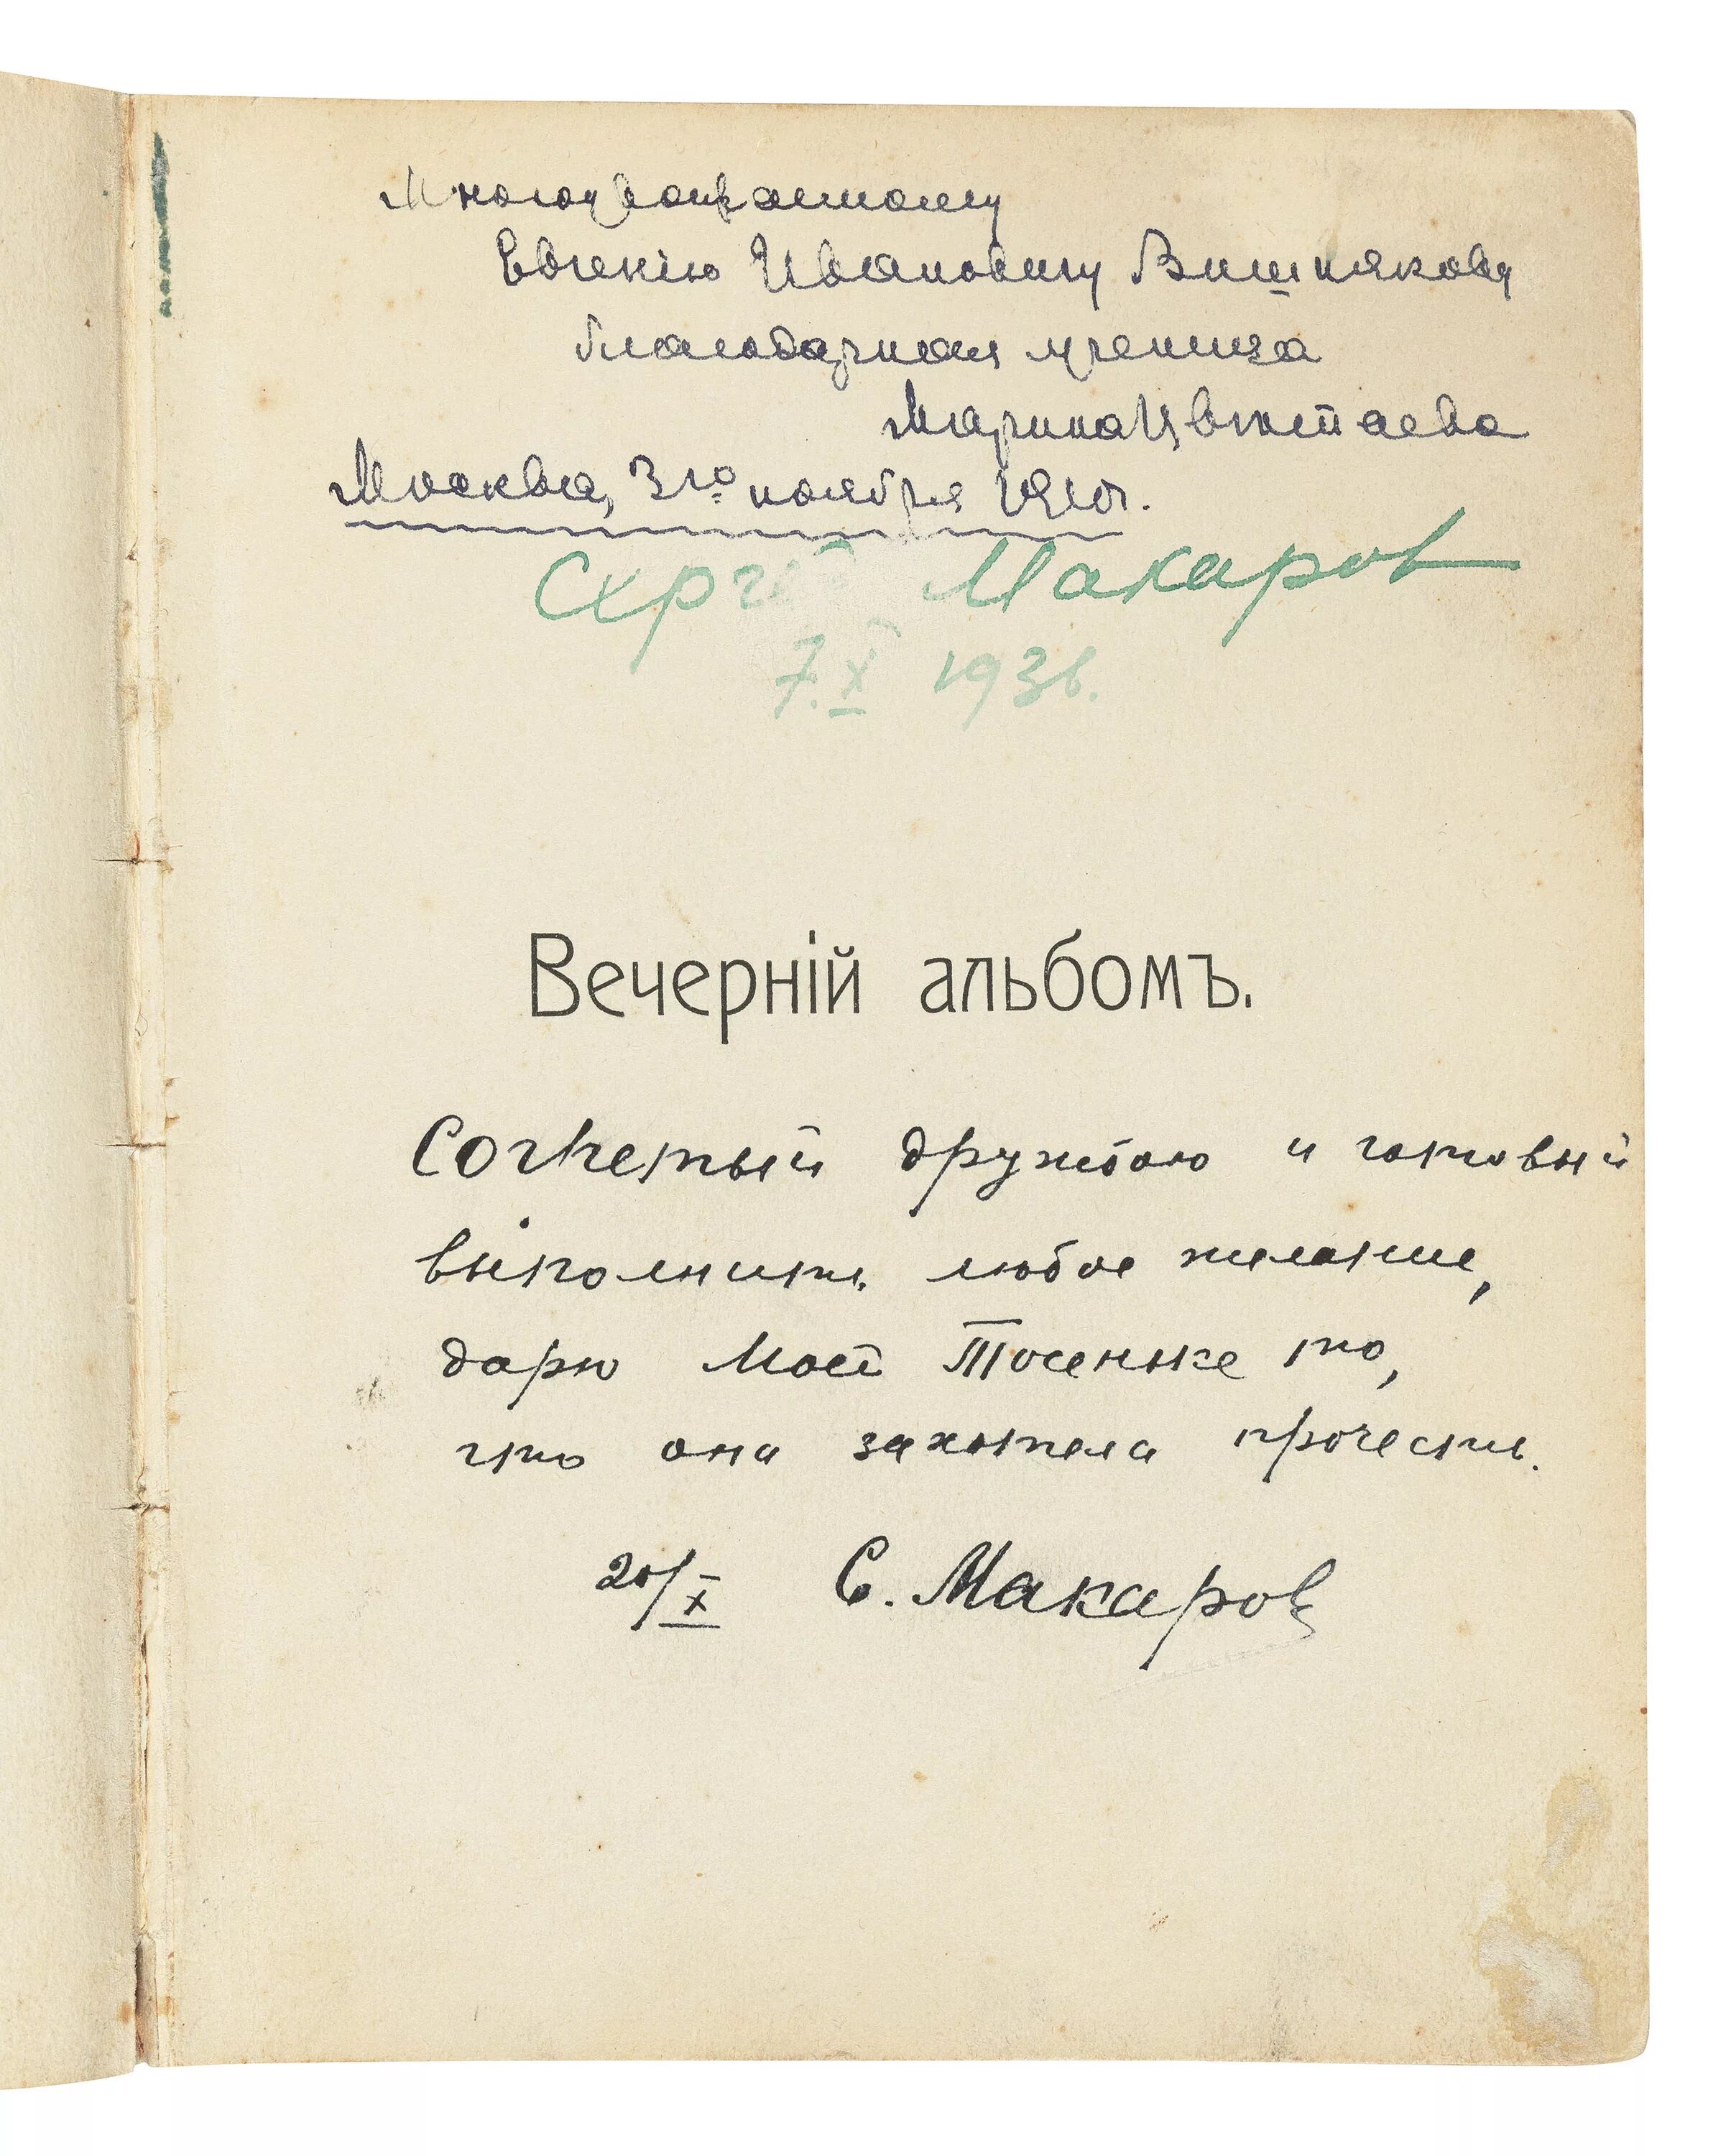 Многоуважаемому
Евгенію Ивановичу Вишнякову
благодарная ученица
Марина Цвѣтаева
Москва, 3го ноября 1910г.
Сергей Макаров
7.X 1936.
Вечерній альбомъ.
Согретый дружбою и готовый
выполнить любое желание,
дарю моей Тосеньке то,
что она захотела прочесть.
20/X С. Макаров